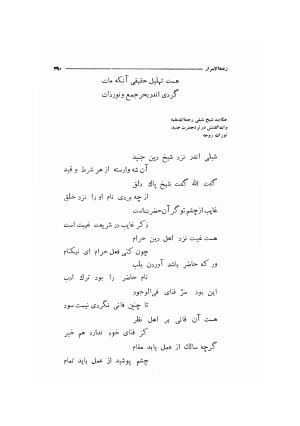 زبدةالاسرار
۳۹۰
هست تهلیل حقیقی آنکه مات
گردی اندر بحر جمع و نور ذات
حکایت شیخ شبلی رحمةاللهعلیه
والله گفتنش در نزد حضرت جنید
نورالله روحه
شبلی اندر نزد شیخ دین جنید
آن شه وارسته از هر شرط و قید
گفت الله گفت شیخ پاك دلق
از چه بردی نام او را نزد خلق
غایب از چشم تو گر آن حضرت است
ذکر غایب در شریعت غیبت است
هست غیبت نزد اهل دین حرام
چون کنی فعل حرام ای نیکنام
ور که حاضر باشد آوردن بلب
نام حاضر را بود ترك ادب
این بود سر فنای فی‌الوجود
تا چنین فانی نگردی نیست سود
هست آن فانی بر اهل نظر
کز فنای خود ندارد هم خبر
گرچه سالك از عمل یابد مقام
چشم پوشید از عمل باید تمام